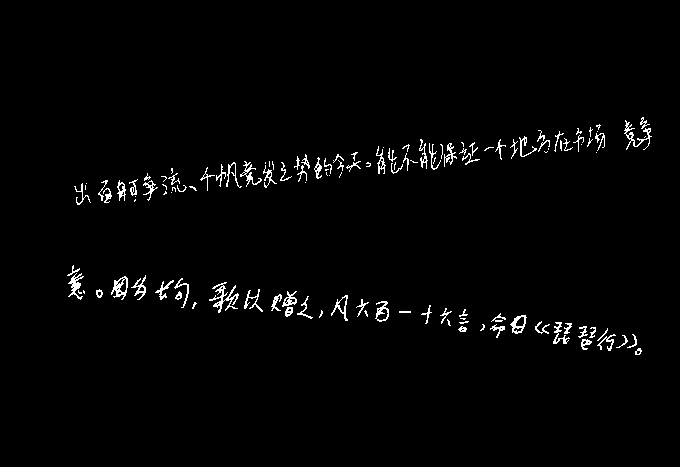 出百舸争流、千帆竞发之势的今天。能不能保证一个地方在市场 竞争
意。因为长句，歌以赠之，凡六百一十六言，命曰《琵琶行》。